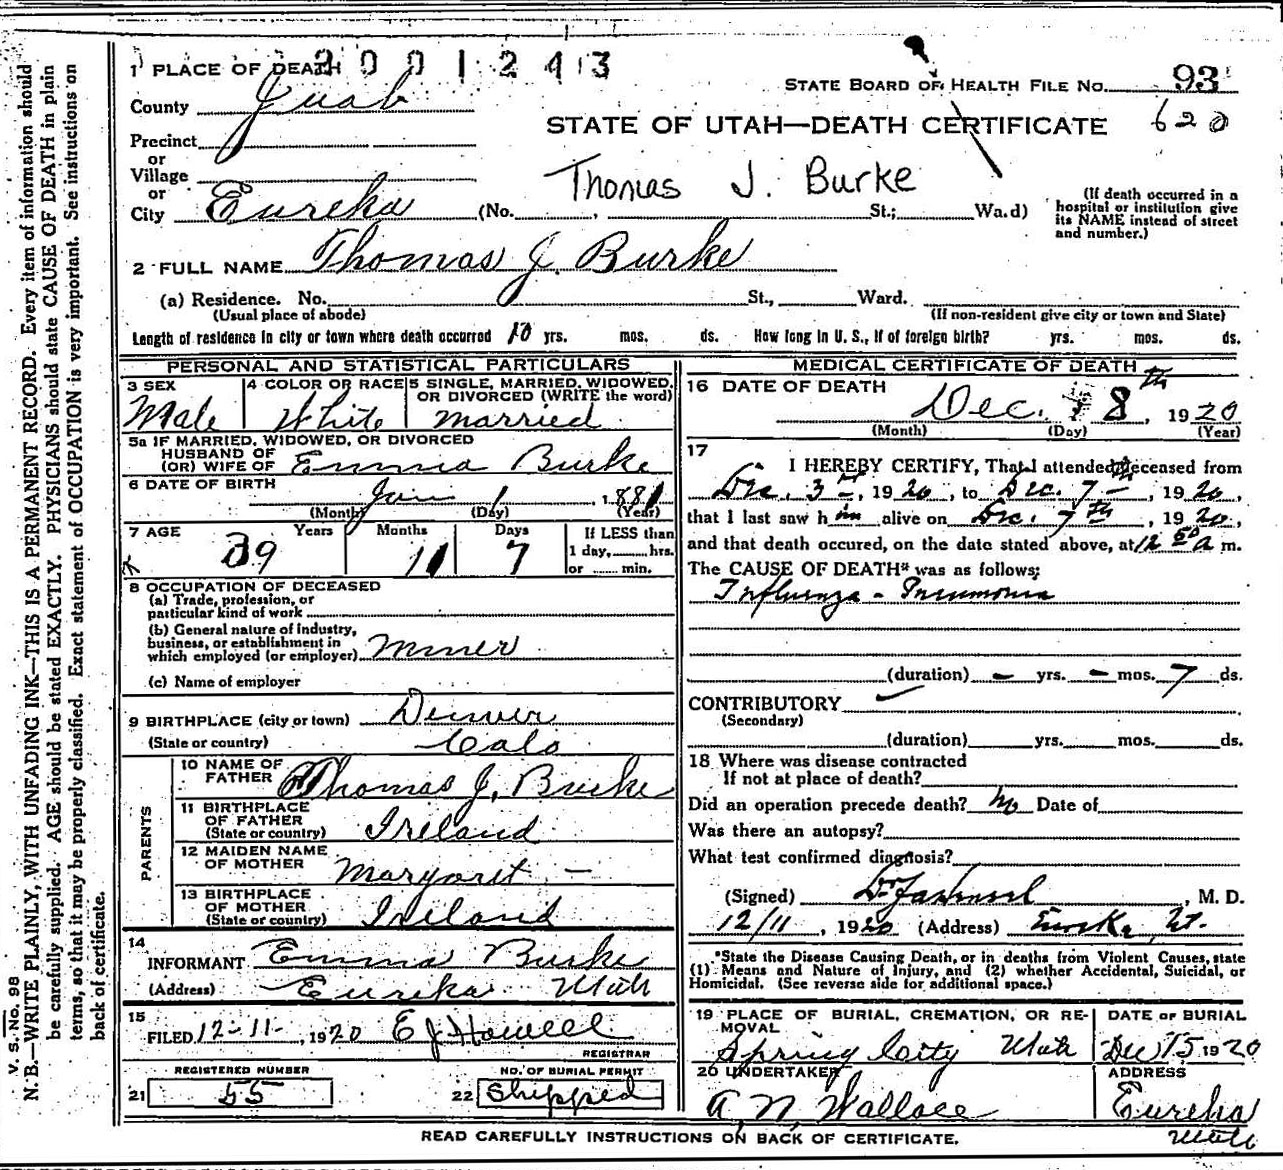 2001243
1 PLACE OF DEATH
STATE BOARD OF HEALTH FILE NO. 93
County Juab
STATE OF UTAH—DEATH CERTIFICATE 620
Precinct
or
Village
Thomas J. Burke
or
City Eureka (No. , St.; Wa.d)
(If death occurred in a
hospital or institution give
its NAME instead of street
and number.)
2 FULL NAME Thomas J. Burke
(a) Residence. No. St., Ward.
(Usual place of abode) (If non-resident give city or town and State)
Length of residence in city or town where death occurred 10 yrs. mos. ds. How long in U. S., if of foreign birth? yrs. mos. ds.
PERSONAL AND STATISTICAL PARTICULARS
3 SEX Male
4 COLOR OR RACE White
5 SINGLE, MARRIED, WIDOWED,
OR DIVORCED (WRITE the word)
married
5a IF MARRIED, WIDOWED, OR DIVORCED
HUSBAND OF
(OR) WIFE OF Emma Burke
6 DATE OF BIRTH Jan 1, 1881
(Month) (Day) (Year)
7 AGE Years Months Days If LESS than
39 11 7 1 day, hrs.
or min.
8 OCCUPATION OF DECEASED
(a) Trade, profession, or
particular kind of work
(b) General nature of industry,
business, or establishment in
which employed (or employer) Miner
(c) Name of employer
9 BIRTHPLACE (city or town) Denver
(State or country) Colo
PARENTS
10 NAME OF
FATHER Thomas J. Burke
11 BIRTHPLACE
OF FATHER
(State or country) Ireland
12 MAIDEN NAME
OF MOTHER Margaret —
13 BIRTHPLACE
OF MOTHER
(State or country) Ireland
14
INFORMANT Emma Burke
(Address) Eureka Utah
15
FILED 12-11-, 1920 E J Howell
REGISTRAR
REGISTERED NUMBER
21 55
NO. OF BURIAL PERMIT
22 Shipped
MEDICAL CERTIFICATE OF DEATH
16 DATE OF DEATH
Dec. 8th, 1920
(Month) (Day) (Year)
17
I HEREBY CERTIFY, That I attended deceased from
Dec. 3, 1920, to Dec. 7th, 1920,
that I last saw him alive on Dec. 7th, 1920,
and that death occured, on the date stated above, at 12 50 a m.
The CAUSE OF DEATH* was as follows:
Influenza - Pneumonia
(duration) – yrs. – mos. 7 ds.
CONTRIBUTORY
(Secondary)
(duration) yrs. mos. ds.
18 Where was disease contracted
If not at place of death?
Did an operation precede death? no Date of
Was there an autopsy?
What test confirmed diagnosis?
(Signed) Dr , M. D.
12/11, 1920 (Address) Eureka, Ut.
*State the Disease Causing Death, or in deaths from Violent Causes, state
(1) Means and Nature of Injury, and (2) whether Accidental, Suicidal, or
Homicidal. (See reverse side for additional space.)
19 PLACE OF BURIAL, CREMATION, OR RE-
MOVAL
Spring City Utah
DATE OF BURIAL
Dec 15 1920
20 UNDERTAKER
A. N. Wallace
ADDRESS
Eureka
Utah
READ CAREFULLY INSTRUCTIONS ON BACK OF CERTIFICATE.
V. S. No. 98
N. B.—WRITE PLAINLY, WITH UNFADING INK—THIS IS A PERMANENT RECORD. Every item of information should
be carefully supplied. AGE should be stated EXACTLY. PHYSICIANS should state CAUSE OF DEATH in plain
terms, so that it may be properly classified. Exact statement of OCCUPATION is very important. See instructions on
back of certificate.